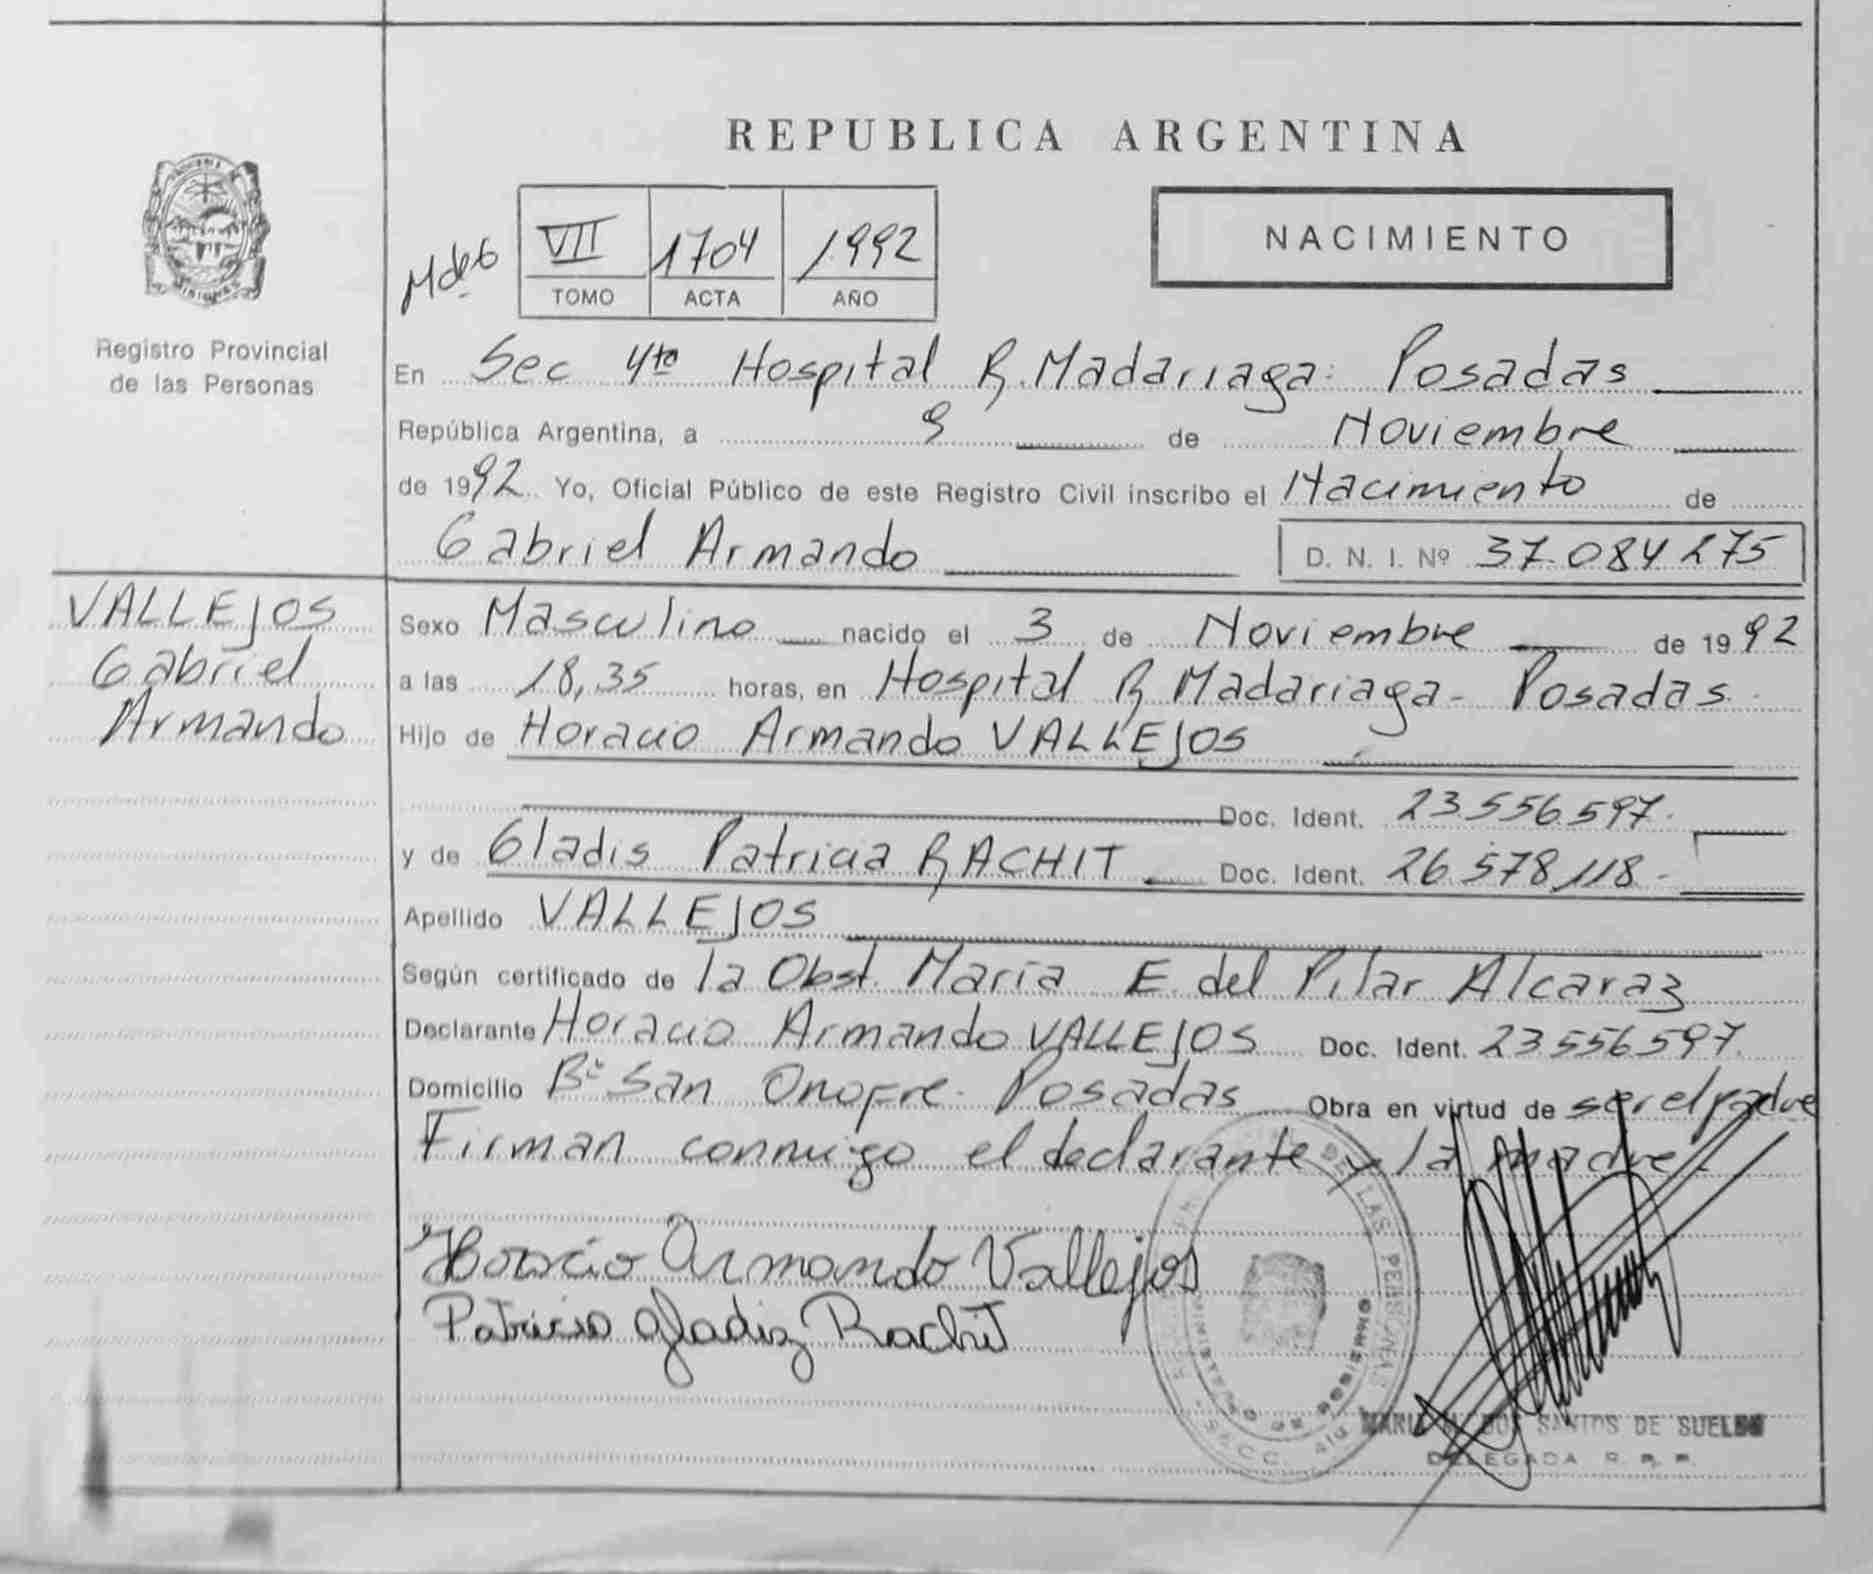 REPUBLICA ARGENTINA
NACIMIENTO
VII 1704 1992
TOMO ACTA AÑO
Registro Provincial
de las Personas
En Sec 4ta Hospital R. Madariaga - Posadas
República Argentina, a 9 de Noviembre
de 1992 Yo, Oficial Público de este Registro Civil inscribo el Nacimiento de
Gabriel Armando D. N. I. Nº 37.084275
VALLEJOS
Gabriel
Armando
Sexo Masculino nacido el 3 de Noviembre de 1992
a las 18,35 horas, en Hospital R Madariaga - Posadas
Hijo de Horacio Armando VALLEJOS
Doc. Ident. 23556597.
y de Gladis Patricia RACHIT Doc. Ident. 26.578,118-
Apellido VALLEJOS
Según certificado de la Obst. María E. del Pilar Alcaraz
Declarante Horacio Armando VALLEJOS Doc. Ident. 23556597.
Domicilio Bº San Onofre - Posadas Obra en virtud de ser el padre
Firman conmigo el declarante y la madre.
Horacio Armando Vallejos
Patricia Gladiz Rachit
DE LAS PERSONAS
DOS SANTOS DE
DELEGADA